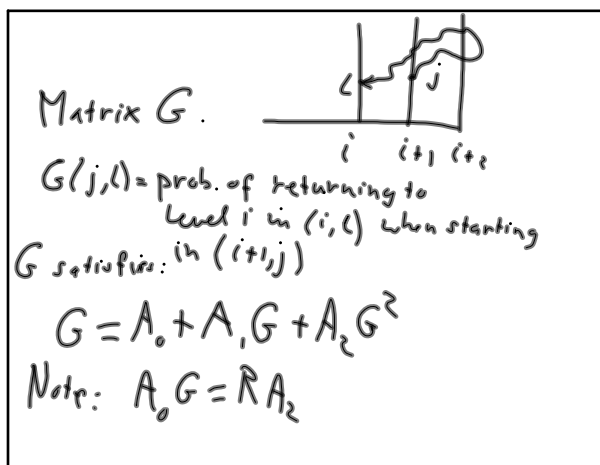 l
j
i i+1 i+2
Matrix G.
G(j,l) = prob. of returning to
level i in (i,l) when starting
in (i+1,j)
G satisfies:
G = A₀ + A₁G + A₂G²
Note: A₀G = RA₂